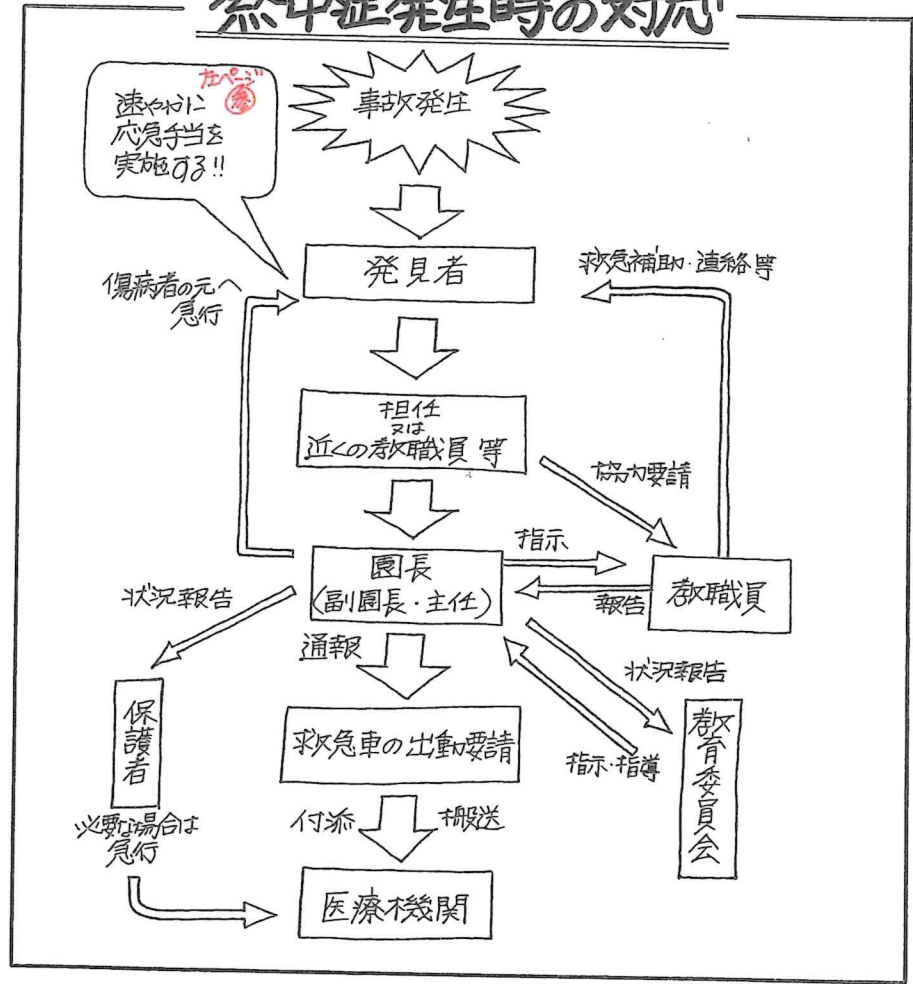 熱中症発生時の対応
事故発生
左ページ
参
速やかに
応急手当を
実施する!!
発見者
傷病者の元へ
急行
救急補助・連絡等
担任
又は
近くの教職員 等
協力要請
園長
(副園長・主任)
指示
報告
教職員
状況報告
通報
状況報告
指示・指導
保護者
救急車の出動要請
教育委員会
必要な場合は
急行
付添
搬送
医療機関